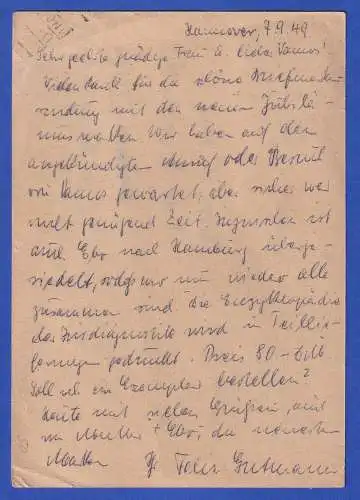 Hannover, 7.9.49
Sehr geehrte gnädige Frau u. lieber Vamos!
Vielen Dank für die schöne Briefmarken-
sendung mit den neuen Jubilä-
umsmarken. Wir haben auf den
angekündigten Anruf oder Besuch
von Vamos gewartet, aber sicher war
nicht genügend Zeit. Inzwischen ist
auch Ebo nach Hamburg überge-
siedelt, sodass wir nun wieder alle
zusammen sind. Die Enzyklopädie
der Irisdiagnostik wird in Teillie-
ferungen gedruckt. Preis 80.- DM
Soll ich ein Exemplar bestellen?
Heute mit vielen Grüßen, auch
von Mutter + Ebo, die neuesten
Marken Ihr Felix Gutmann